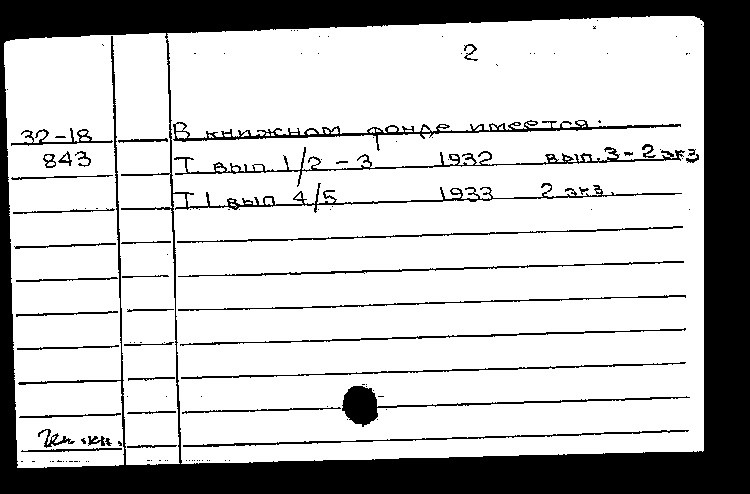 2
32-18 В книжном фонде имеется:
843 Т. вып. 1/2-3 1932 вып. 3-2 экз
Т 1 вып 4/5 1933 2 экз.